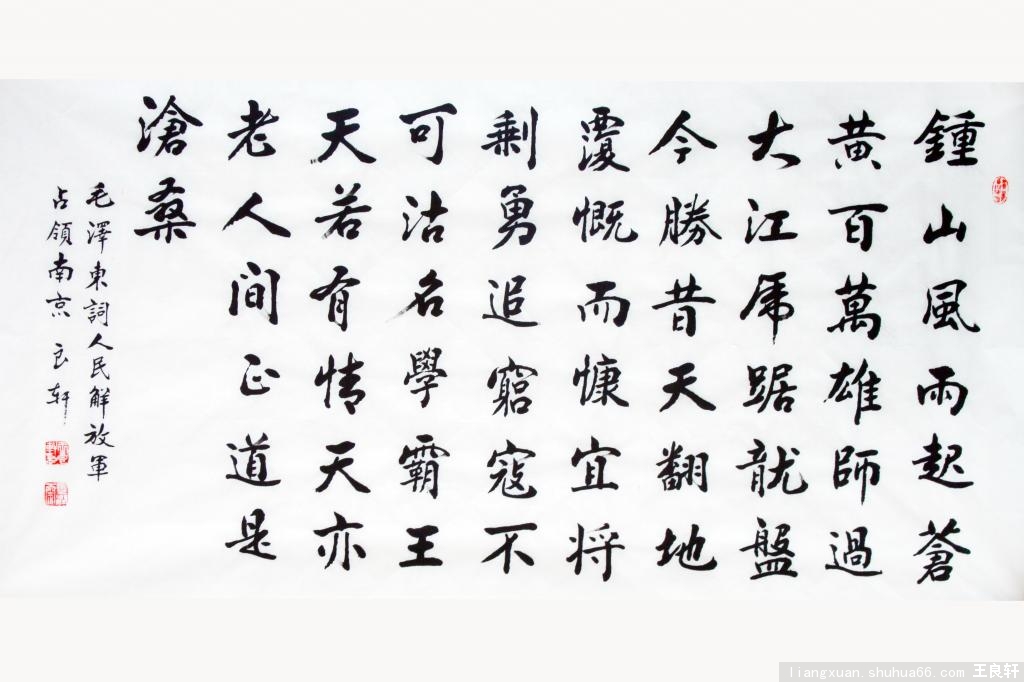 鍾山風雨起蒼
黃百萬雄師過
大江虎踞龍盤
今勝昔天翻地
覆慨而慷宜将
剩勇追窮寇不
可沽名學霸王
天若有情天亦
老人間正道是
滄桑
毛澤東詞人民解放軍
占領南京 良轩
liangxuan.shuhua66.com 王良轩